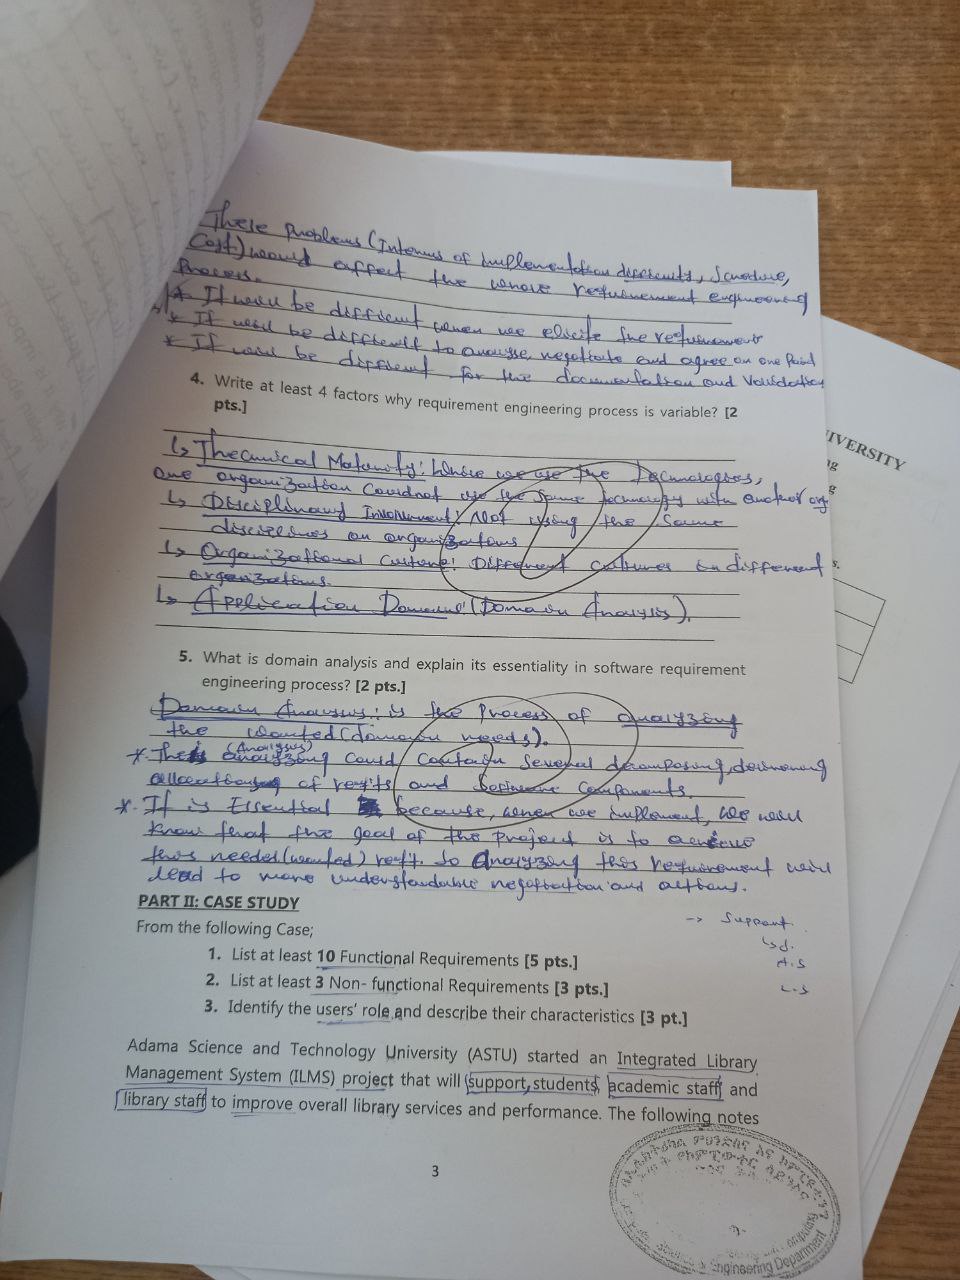 These problems (Interms of implementation difficulty, Schedule,
Cost) would affect the whole requirement engineering
process.
* It will be difficult when we elicite the requirement
* It will be difficult to analyse, negotiate and agree on one point
* It will be difficult for the documentation and Validation
4. Write at least 4 factors why requirement engineering process is variable? [2
pts.]
↳ Thecnical Maturity: where we use the Technologies,
one organization couldnot use the same technology with another org
↳ Disciplinary Involvement: Not using the same
on organizations
↳ Organizational Culture: Different cultures in different
organizations.
↳ Application Domain: (Domain Analysis).
5. What is domain analysis and explain its essentiality in software requirement
engineering process? [2 pts.]
Domain Analysis: is the process of analyzing
the wanted (domain needs).
(Analysis)
* This analyzing could contain several decomposing,
of and Software components.
* It is Essential because, when we implement, we will
know that the goal of the project is to achieve
this needed (wanted) So Analyzing this requirement will
lead to more understandable negotiation and actions.
PART II: CASE STUDY
-> Support
From the following Case;
↳ S.
1. List at least 10 Functional Requirements [5 pts.]
A.S
2. List at least 3 Non- functional Requirements [3 pts.]
L.S
3. Identify the users' role and describe their characteristics [3 pt.]
Adama Science and Technology University (ASTU) started an Integrated Library
Management System (ILMS) project that will support students, academic staff and
library staff to improve overall library services and performance. The following notes
3
Engineering Department
IVERSITY
ng
g
s.